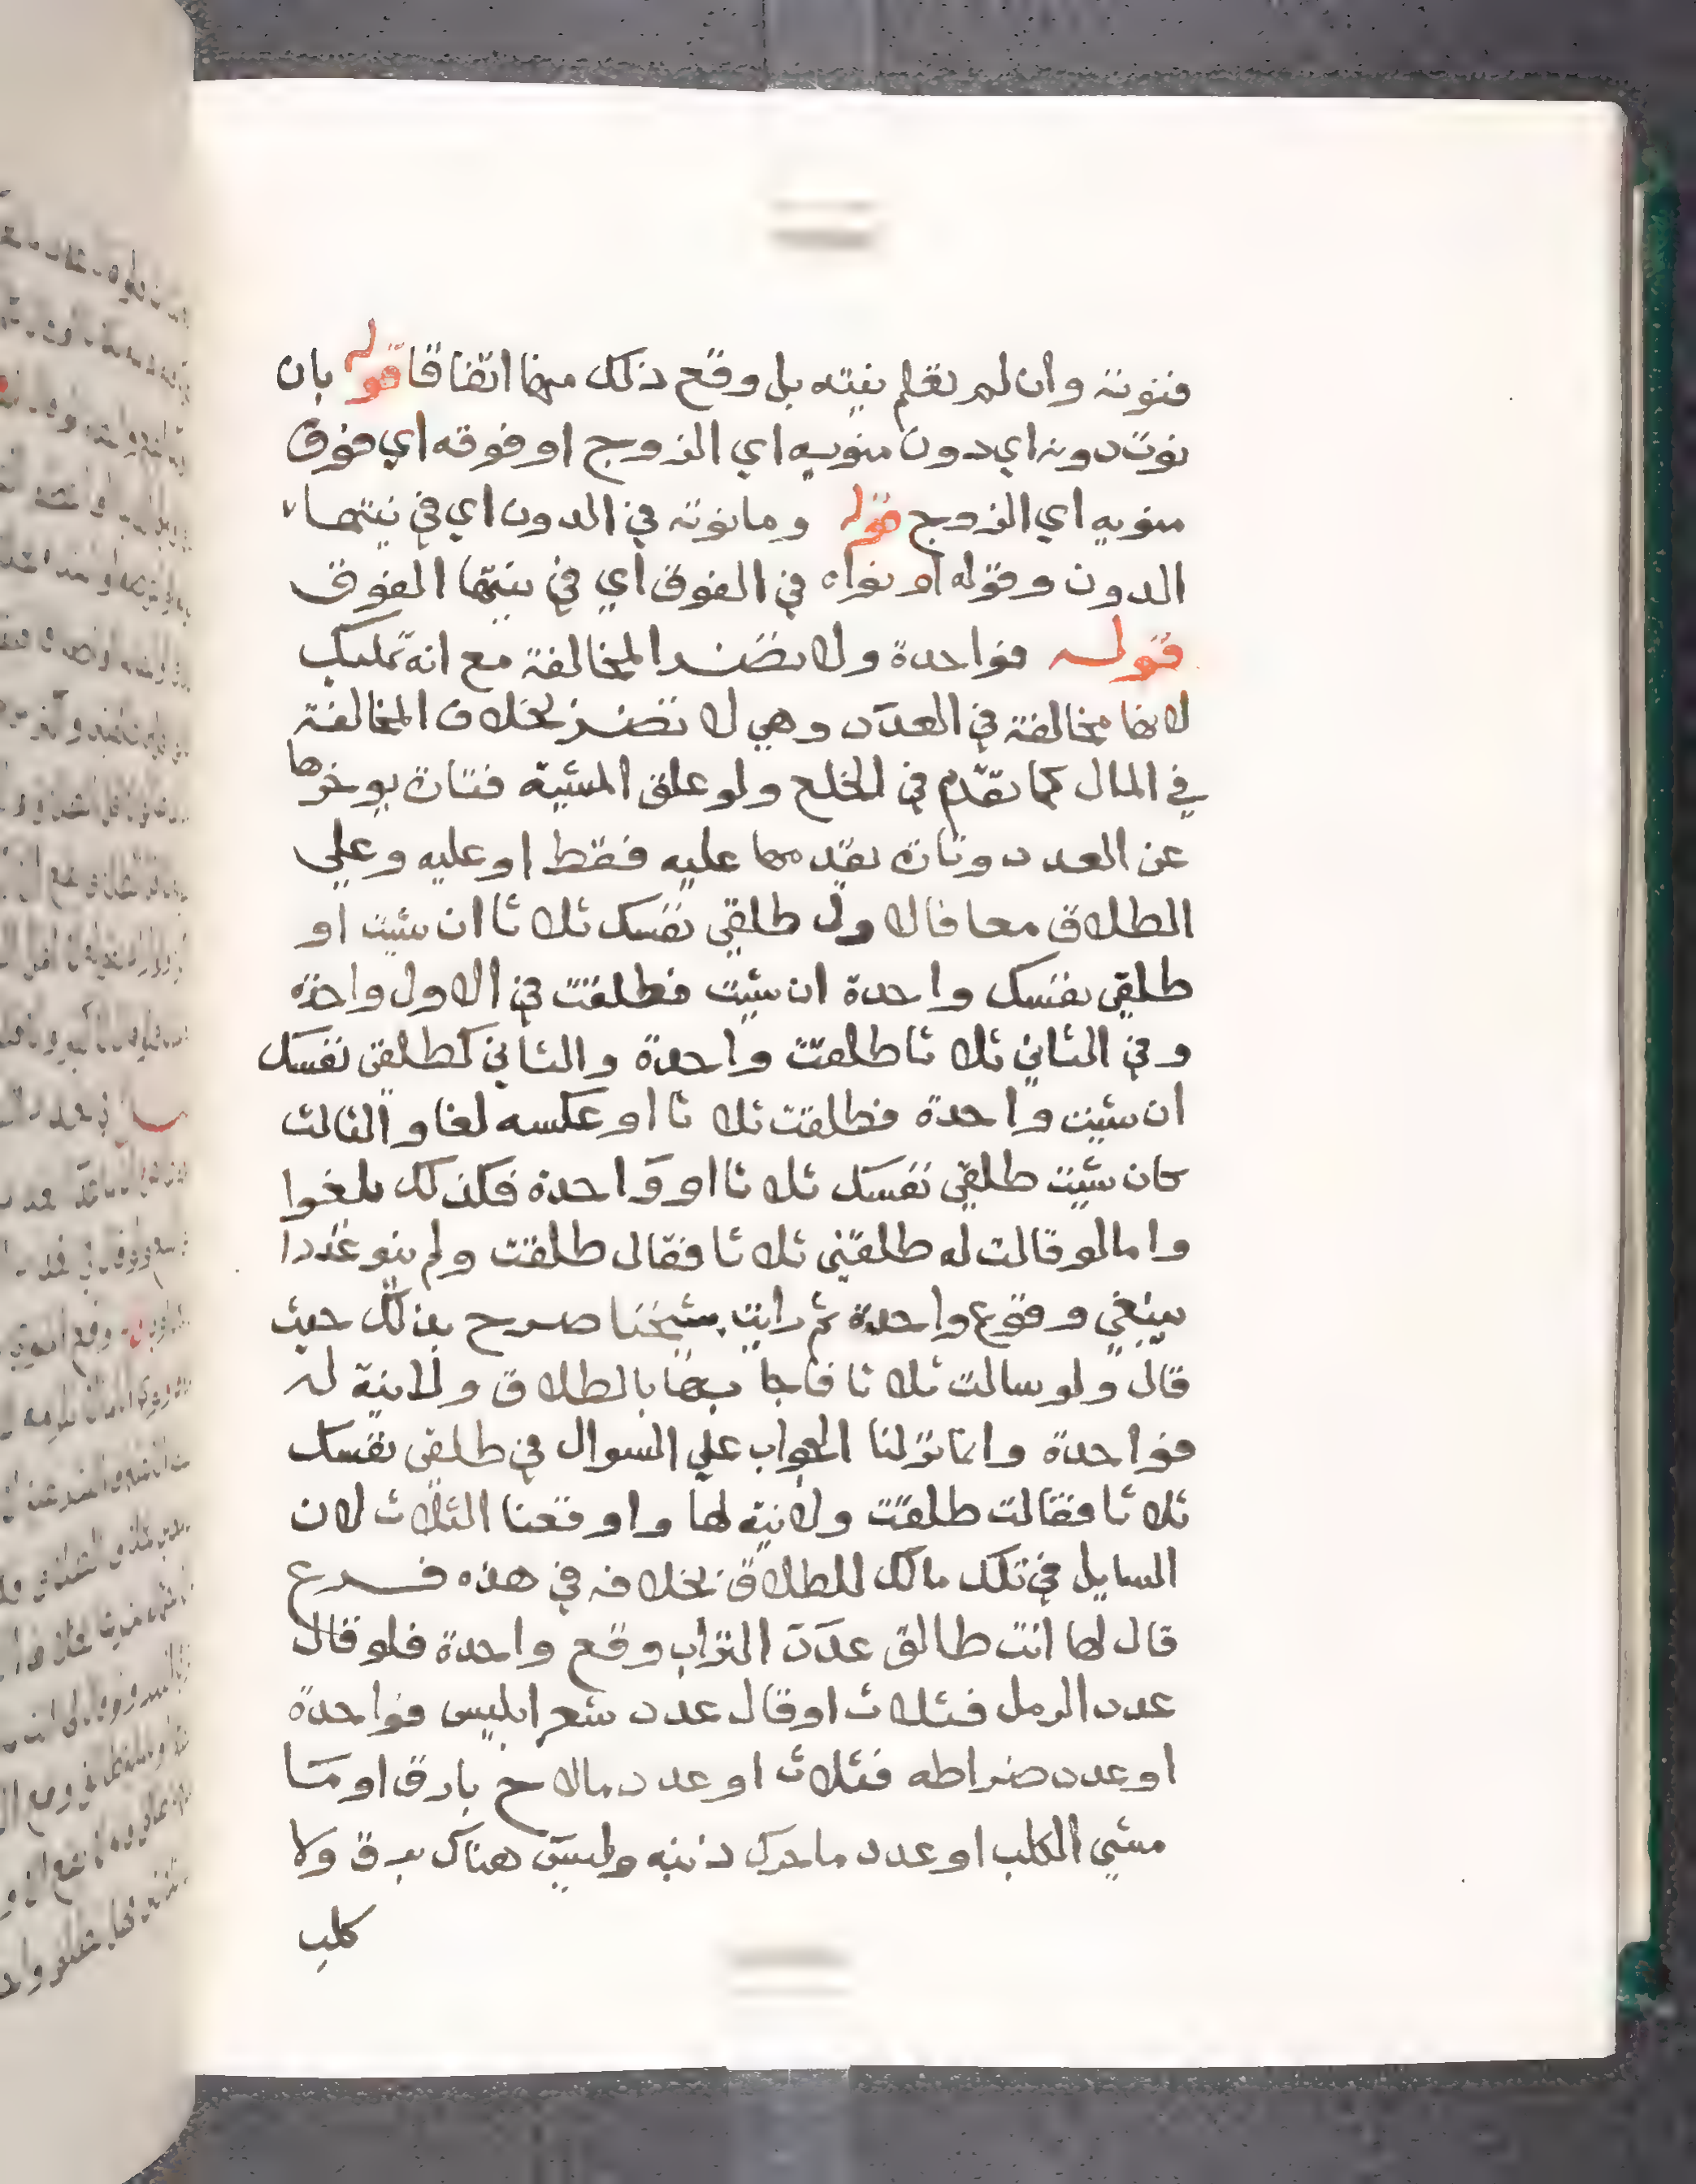 فنوته وان لم تعلم نيته بل وقع ذلك منها اتفاقا قوله بان
نوت دونه اي دون منويه اي الزوج او فوقه اي فوق
منويه اي الزوج قوله وما نوته في الدون اي في نيتها
الدون وقوله او نواه في الفوق اي في نيتها الفوق
قوله فواحدة ولا تضر المخالفة مع انه تمليك
لانها مخالفة في العدد وهي لا تضر بخلاف المخالفة
في المال كما تقدم في الخلع ولو علق المشية فتارة يوخرها
عن العدد وتارة يقدمها عليه فقط او عليه وعلي
الطلاق معا فالاول طلقي نفسك ثلاثا ان شيت او
طلقي نفسك واحدة ان شيت فطلقت في الاول واحدة
وفي الثاني ثلاثا طلقت واحدة والثاني كطلقي نفسك
ان شيت واحدة فطلقت ثلاثا او عكسه لغا والثالث
كان شيت طلقي نفسك ثلاثا او واحدة فكذلك يلغوا
واما لو قالت له طلقني ثلاثا فقال طلقت ولم ينو عددا
فينبغي وقوع واحدة ثم رايت شيخنا صرح بذلك حيث
قال ولو سالت ثلاثا فاجابها بالطلاق ولا نية له
فواحدة وانما نزلنا الجواب علي السوال في طلقي نفسك
ثلاثا فقالت طلقت ولا نية لها واوقعنا الثلاث لان
السايل في تلك مالك للطلاق بخلافه في هذه فرع
قال لها انت طالق عدد التراب وقع واحدة فلو قال
عدد الرمل فثلاث او قال عدد شعر ابليس فواحدة
او عدد ضراطه فثلاث او عدد ما لاح بارق او ما
مشي الكلب او عدد ما حرك ذنبه وليس هناك برق ولا
كلب